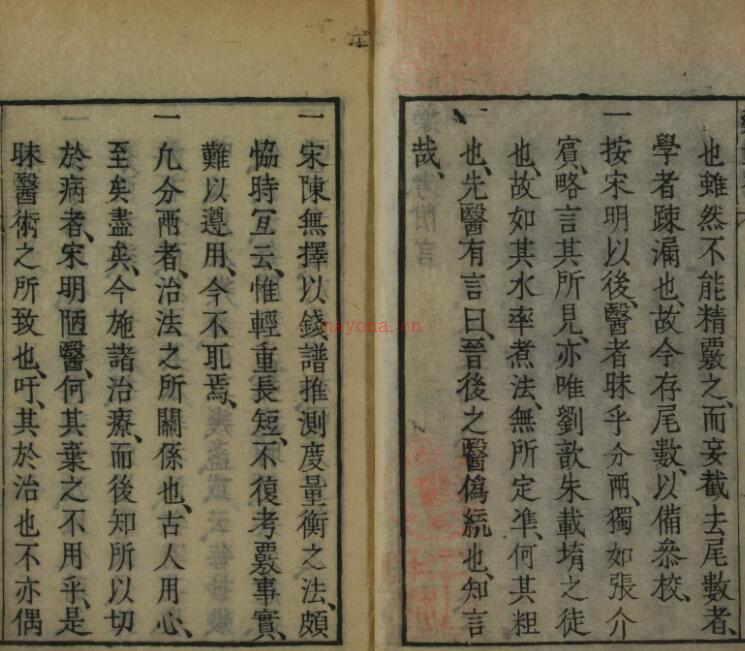 也雖然不能精覈之、而妄截去尾數者、
學者踈漏也、故今存尾數、以備參校、
一按宋明以後、醫者昧乎分兩、獨如張介
賔、略言其所見、亦唯劉歆朱載堉之徒
也、故如其水率煮法、無所定準、何其粗
也、先醫有言曰、晉後之醫僞統也、知言
哉、
一宋陳無擇以錢譜推測度量衡之法、頗
恊時宜云、惟輕重長短、不復考覈事實、
難以遵用、今不𫆀焉、
一凢分兩者、治法之所關係也、古人用心、
至矣盡矣、今施諸治療、而後知所以切
於病者、宋明陋醫、何其棄之不用乎、是
昧醫術之所致也、吁、其於治也不亦偶
nayona.cn